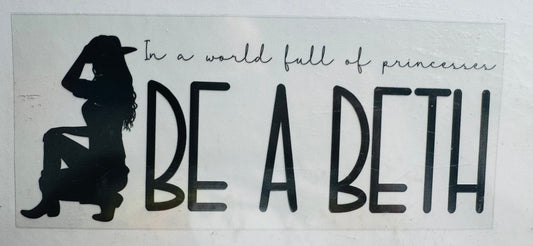 In a world full of princesses
BE A BETH